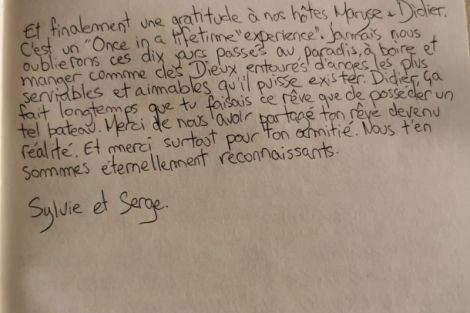 Et finalement une gratitude à nos hôtes Maryse & Didier.
C'est un "Once in a lifetimne" experience". Jamais nous
oublierons ces dix jours passés au paradis, à boire et
manger commme des Dieux entourés d'anges les plus
serviables et aimnables qu'il puisse exister. Didier, ça
fait longtemps que tu faisais ce rêve que de posséder un
tel bateau. Merci de nous avoir partagé ton rêve devenu
réalité. Et merci surtout pour ton admitié. Nous t'en
sommmes éternellement reconnaissants.
Sylvie et Serge.